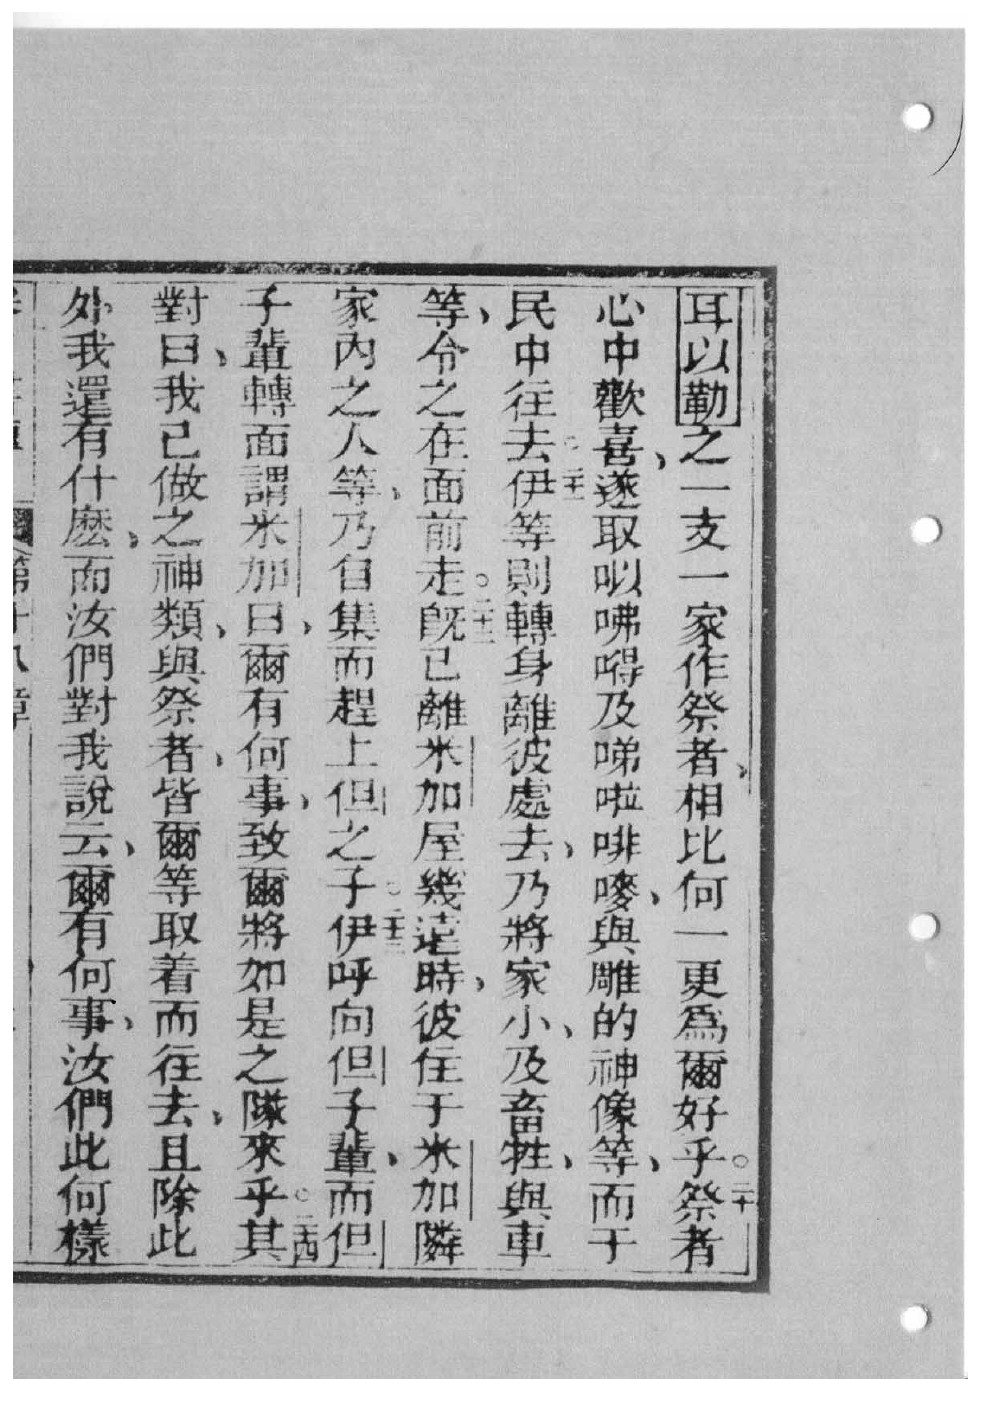 耳以勒之一支一家作祭者、相比何一更爲爾好乎。二十祭者
心中歡喜、遂取㕥咈嘚及啼啦啡嘜、與雕的神像等、而于
民中往去。二十一伊等則轉身離彼處去、乃將家小、及畜牲、與車
等、令之在面前走。二十二既已離米加屋幾遠時、彼住于米加隣
家內之人等、乃自集而趕上但之子。二十三伊呼向但子輩、而但
子輩轉面謂米加曰、爾有何事、致爾將如是之隊來乎。二十四其
對曰、我已做之神類、與祭者、皆爾等取着而往去、且除此
外我還有什麽、而汝們對我說云、爾有何事、汝們此何樣
第十八章